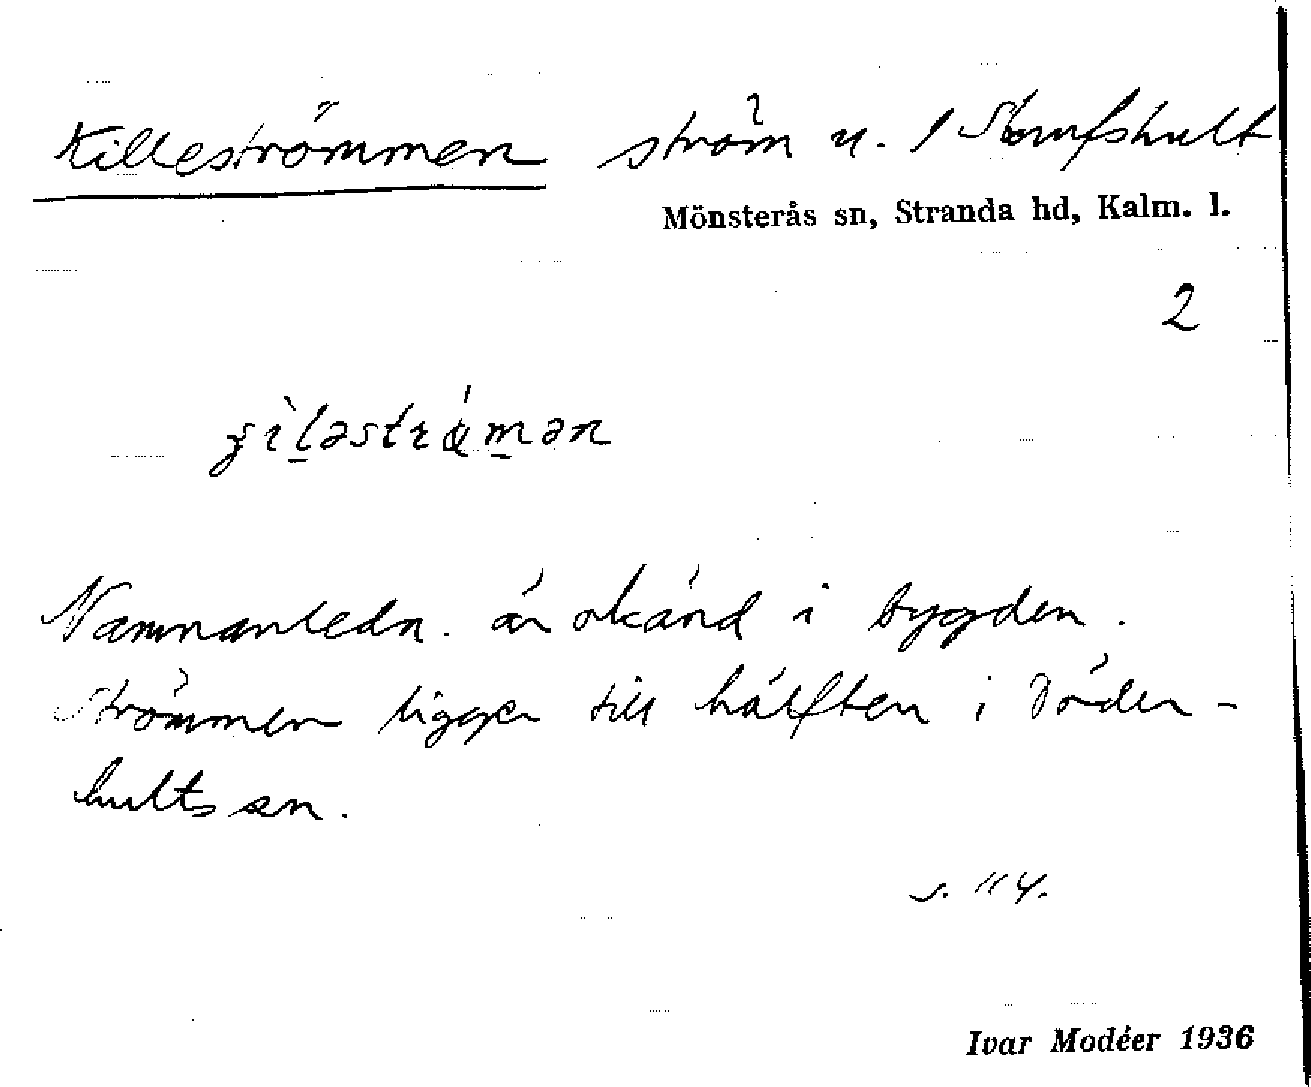 Killeströmmen ström u. 1 Kornfshult
Mönsterås sn, Stranda hd, Kalm. l.
2
Namnanledn. är okänd i bygden.
Strömmen ligger till hälften i Döder-
hults sn.
s. 114.
Ivar Modéer 1936